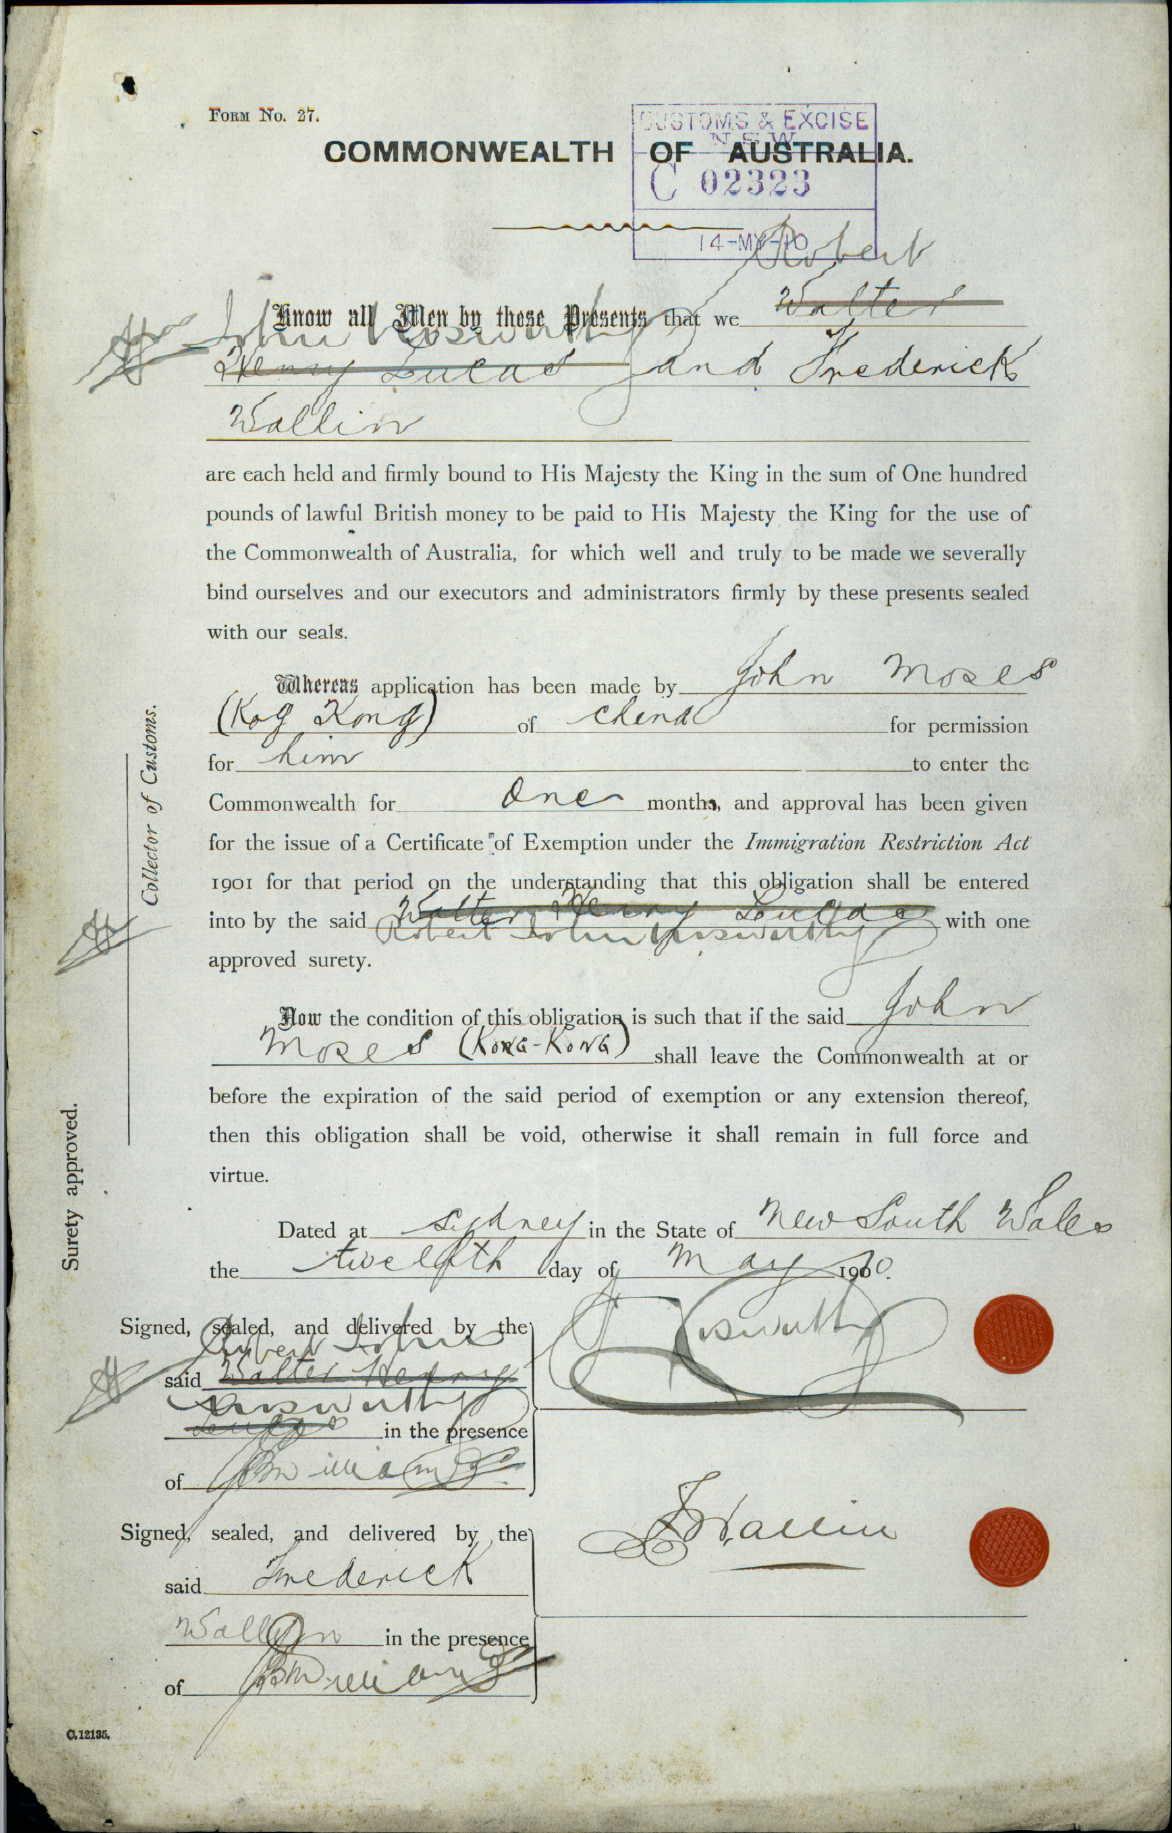 FORM NO. 27.
CUSTOMS & EXCISE
N.S.W.
COMMONWEALTH OF AUSTRALIA.
C 02323
14-MY-10
Robert
Know all Men by these Presents that we Walter
John Kosworthy
Henry Lucas and Frederick
Wallin
are each held and firmly bound to His Majesty the King in the sum of One hundred
pounds of lawful British money to be paid to His Majesty the King for the use of
the Commonwealth of Australia, for which well and truly to be made we severally
bind ourselves and our executors and administrators firmly by these presents sealed
with our seals.
Whereas application has been made by John Moses
(Kog Kong) of China for permission
for him to enter the
Commonwealth for One months, and approval has been given
for the issue of a Certificate of Exemption under the Immigration Restriction Act
1901 for that period on the understanding that this obligation shall be entered
into by the said Walter Henry Lucas with one
Robert John Kosworthy
approved surety.
Now the condition of this obligation is such that if the said John
Moses (Kong-Kong) shall leave the Commonwealth at or
before the expiration of the said period of exemption or any extension thereof,
then this obligation shall be void, otherwise it shall remain in full force and
virtue.
Dated at Sydney in the State of New South Wales
the twelfth day of May 1910.
Signed, sealed, and delivered by the
Robert John
said Walter Henry
Kosworthy
Lucas in the presence
of Williams
Kosworthy
Signed, sealed, and delivered by the
said Frederick
Wallin in the presence
of Williams
F Wallin
Surety approved.
Collector of Customs.
C.12135.